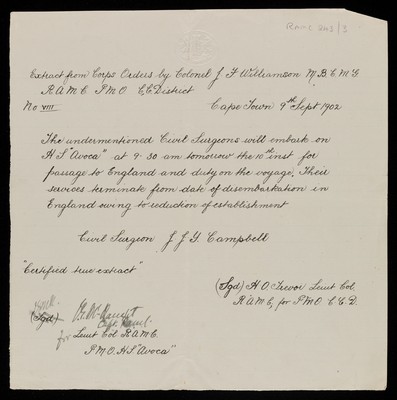 RAMC 203/3
Extract from Corps Orders by Colonel J F Williamson M.B. C M G
R A M C P M O C C District
No VIII Cape Town 9th Sept 1902
The undermentioned Civil Surgeons will embark on
H S "Avoca" at 9-30 am tomorrow the 10th inst for
passage to England and duty on the voyage. Their
services terminate from date of disembarkation in
England owing to reduction of establishment
Civil Surgeon J J Y Campbell
"Certified true extract"
(Sgd) H O Trevor Lieut Col
R A M C, for P M O C C D.
(Sgd)
for Lieut Col R A M C.
P M O. H S "Avoca"